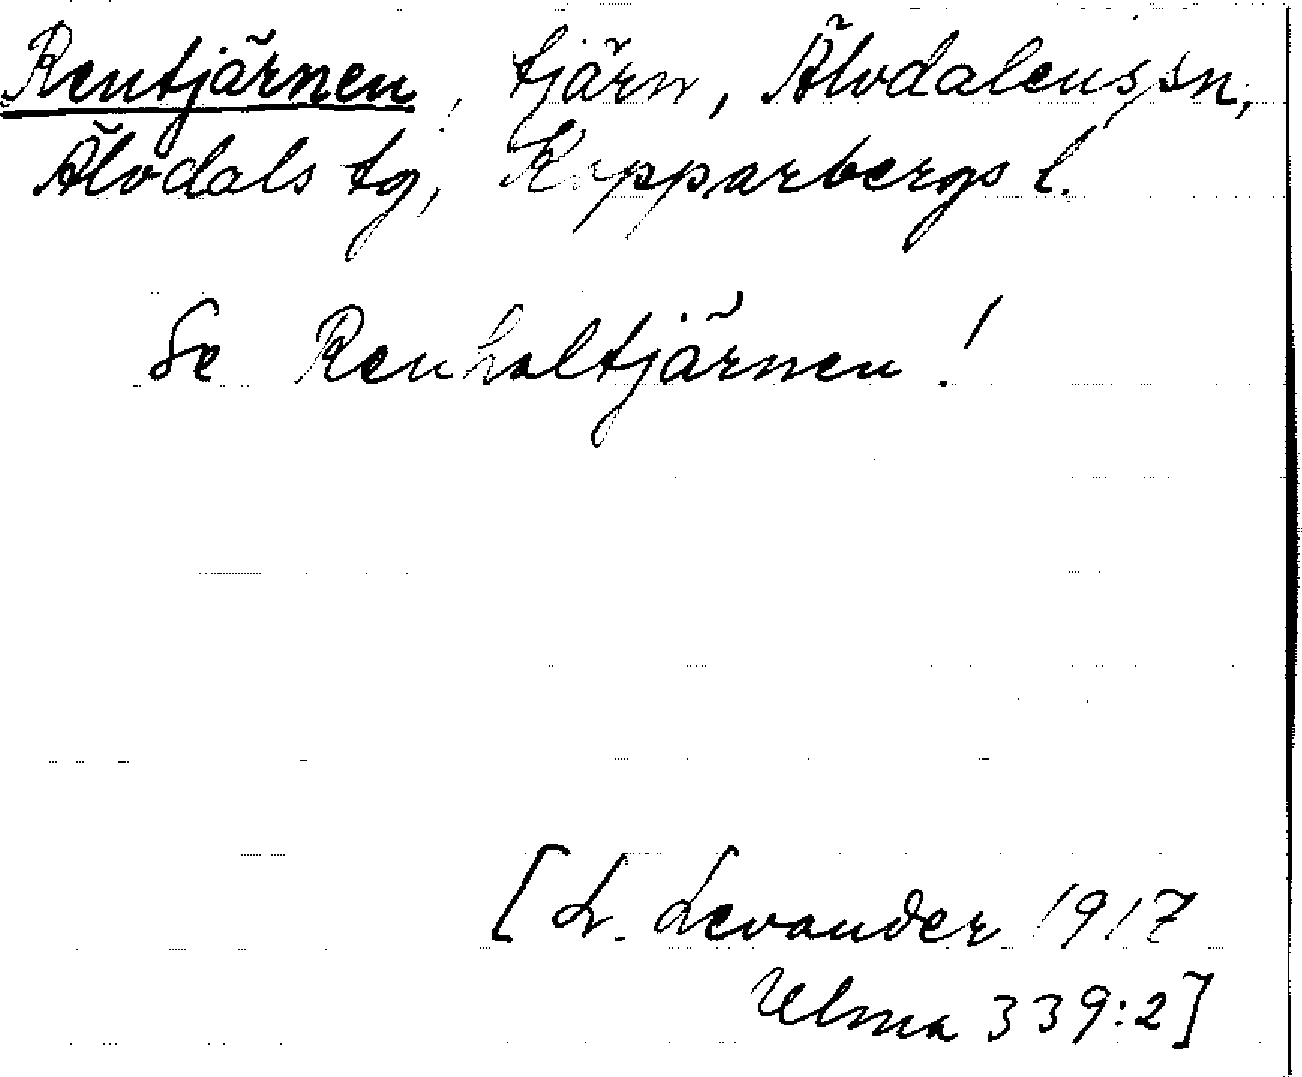 Rentjärnen, tjärn, Älvdalens sn,
Älvdals tg, Kopparbergs l.
Se Renholtjärnen!
[L. Levander 1917
Ulma 339:2]